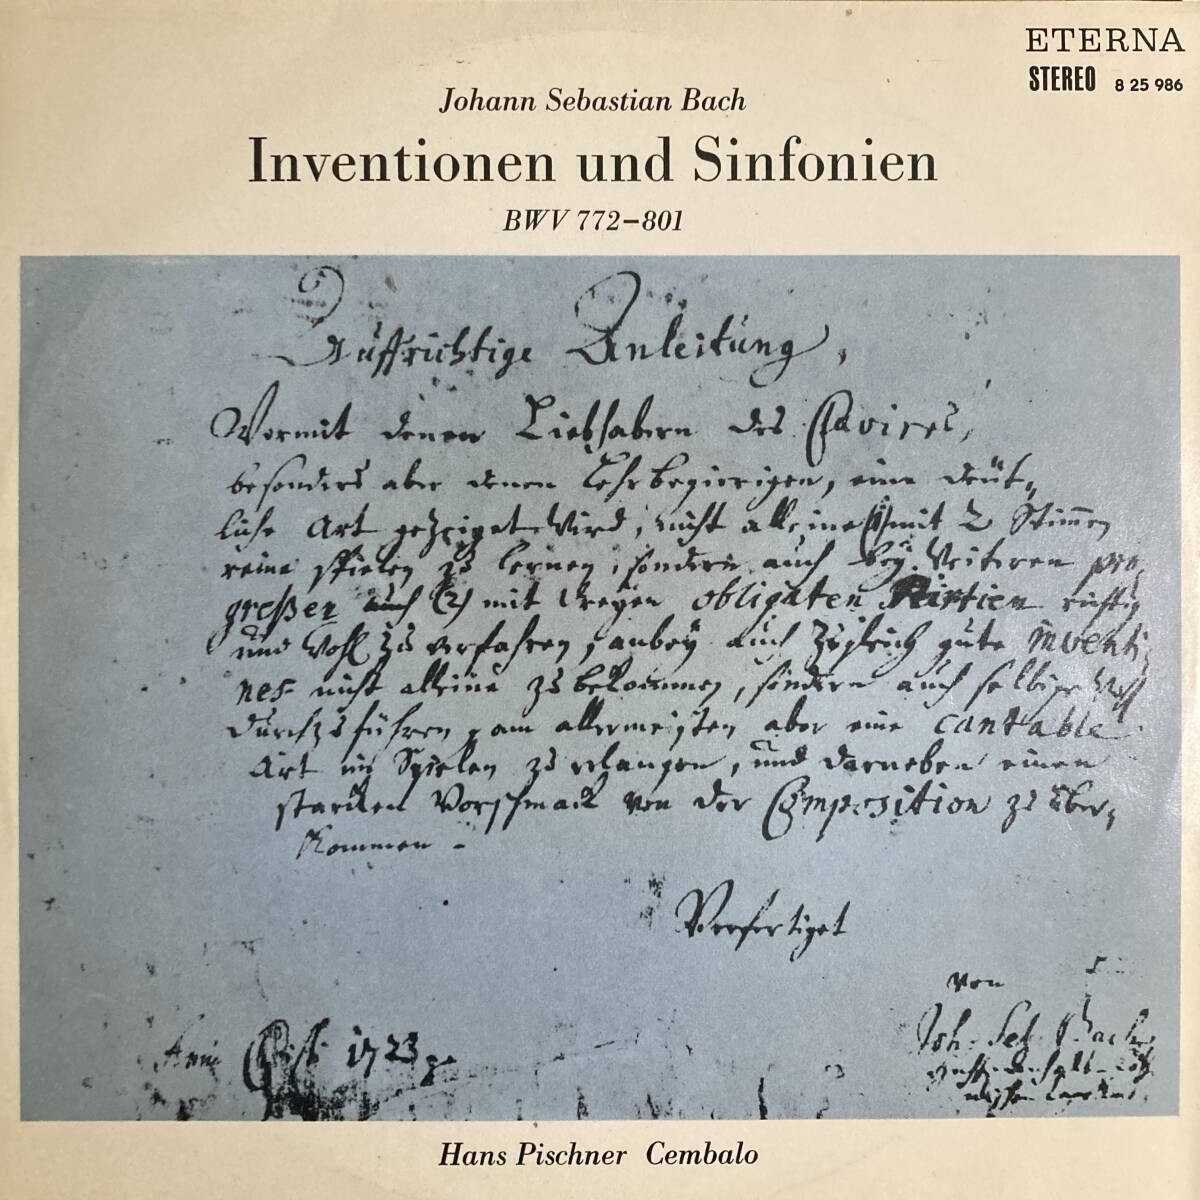 ETERNA
STEREO 8 25 986
Johann Sebastian Bach
Inventionen und Sinfonien
BWV 772–801
Auffrichtige Anleitung,
Wormit denen Liebhabern des Clavires,
besonders aber denen Lehrbegierigen, eine deüt-
liche Art gezeiget wird, nicht alleine (1) mit 2 Stimen
reine spielen zu lernen, sondern auch bey weiteren pro-
greßen auch (2) mit dreyen obligaten Partien richtig
und wohl zu verfahren, anbey auch zugleich gute inventi-
nes nicht alleine zu bekommen, sondern auch selbige wohl
durchzuführen, am allermeisten aber eine cantable
Art im Spielen zu erlangen, und darneben einen
starcken Vorschmack von der Composition zu über-
kommen.
Verfertiget
von
Joh. Seb. Bach
Anno Christi 1723
Hans Pischner Cembalo